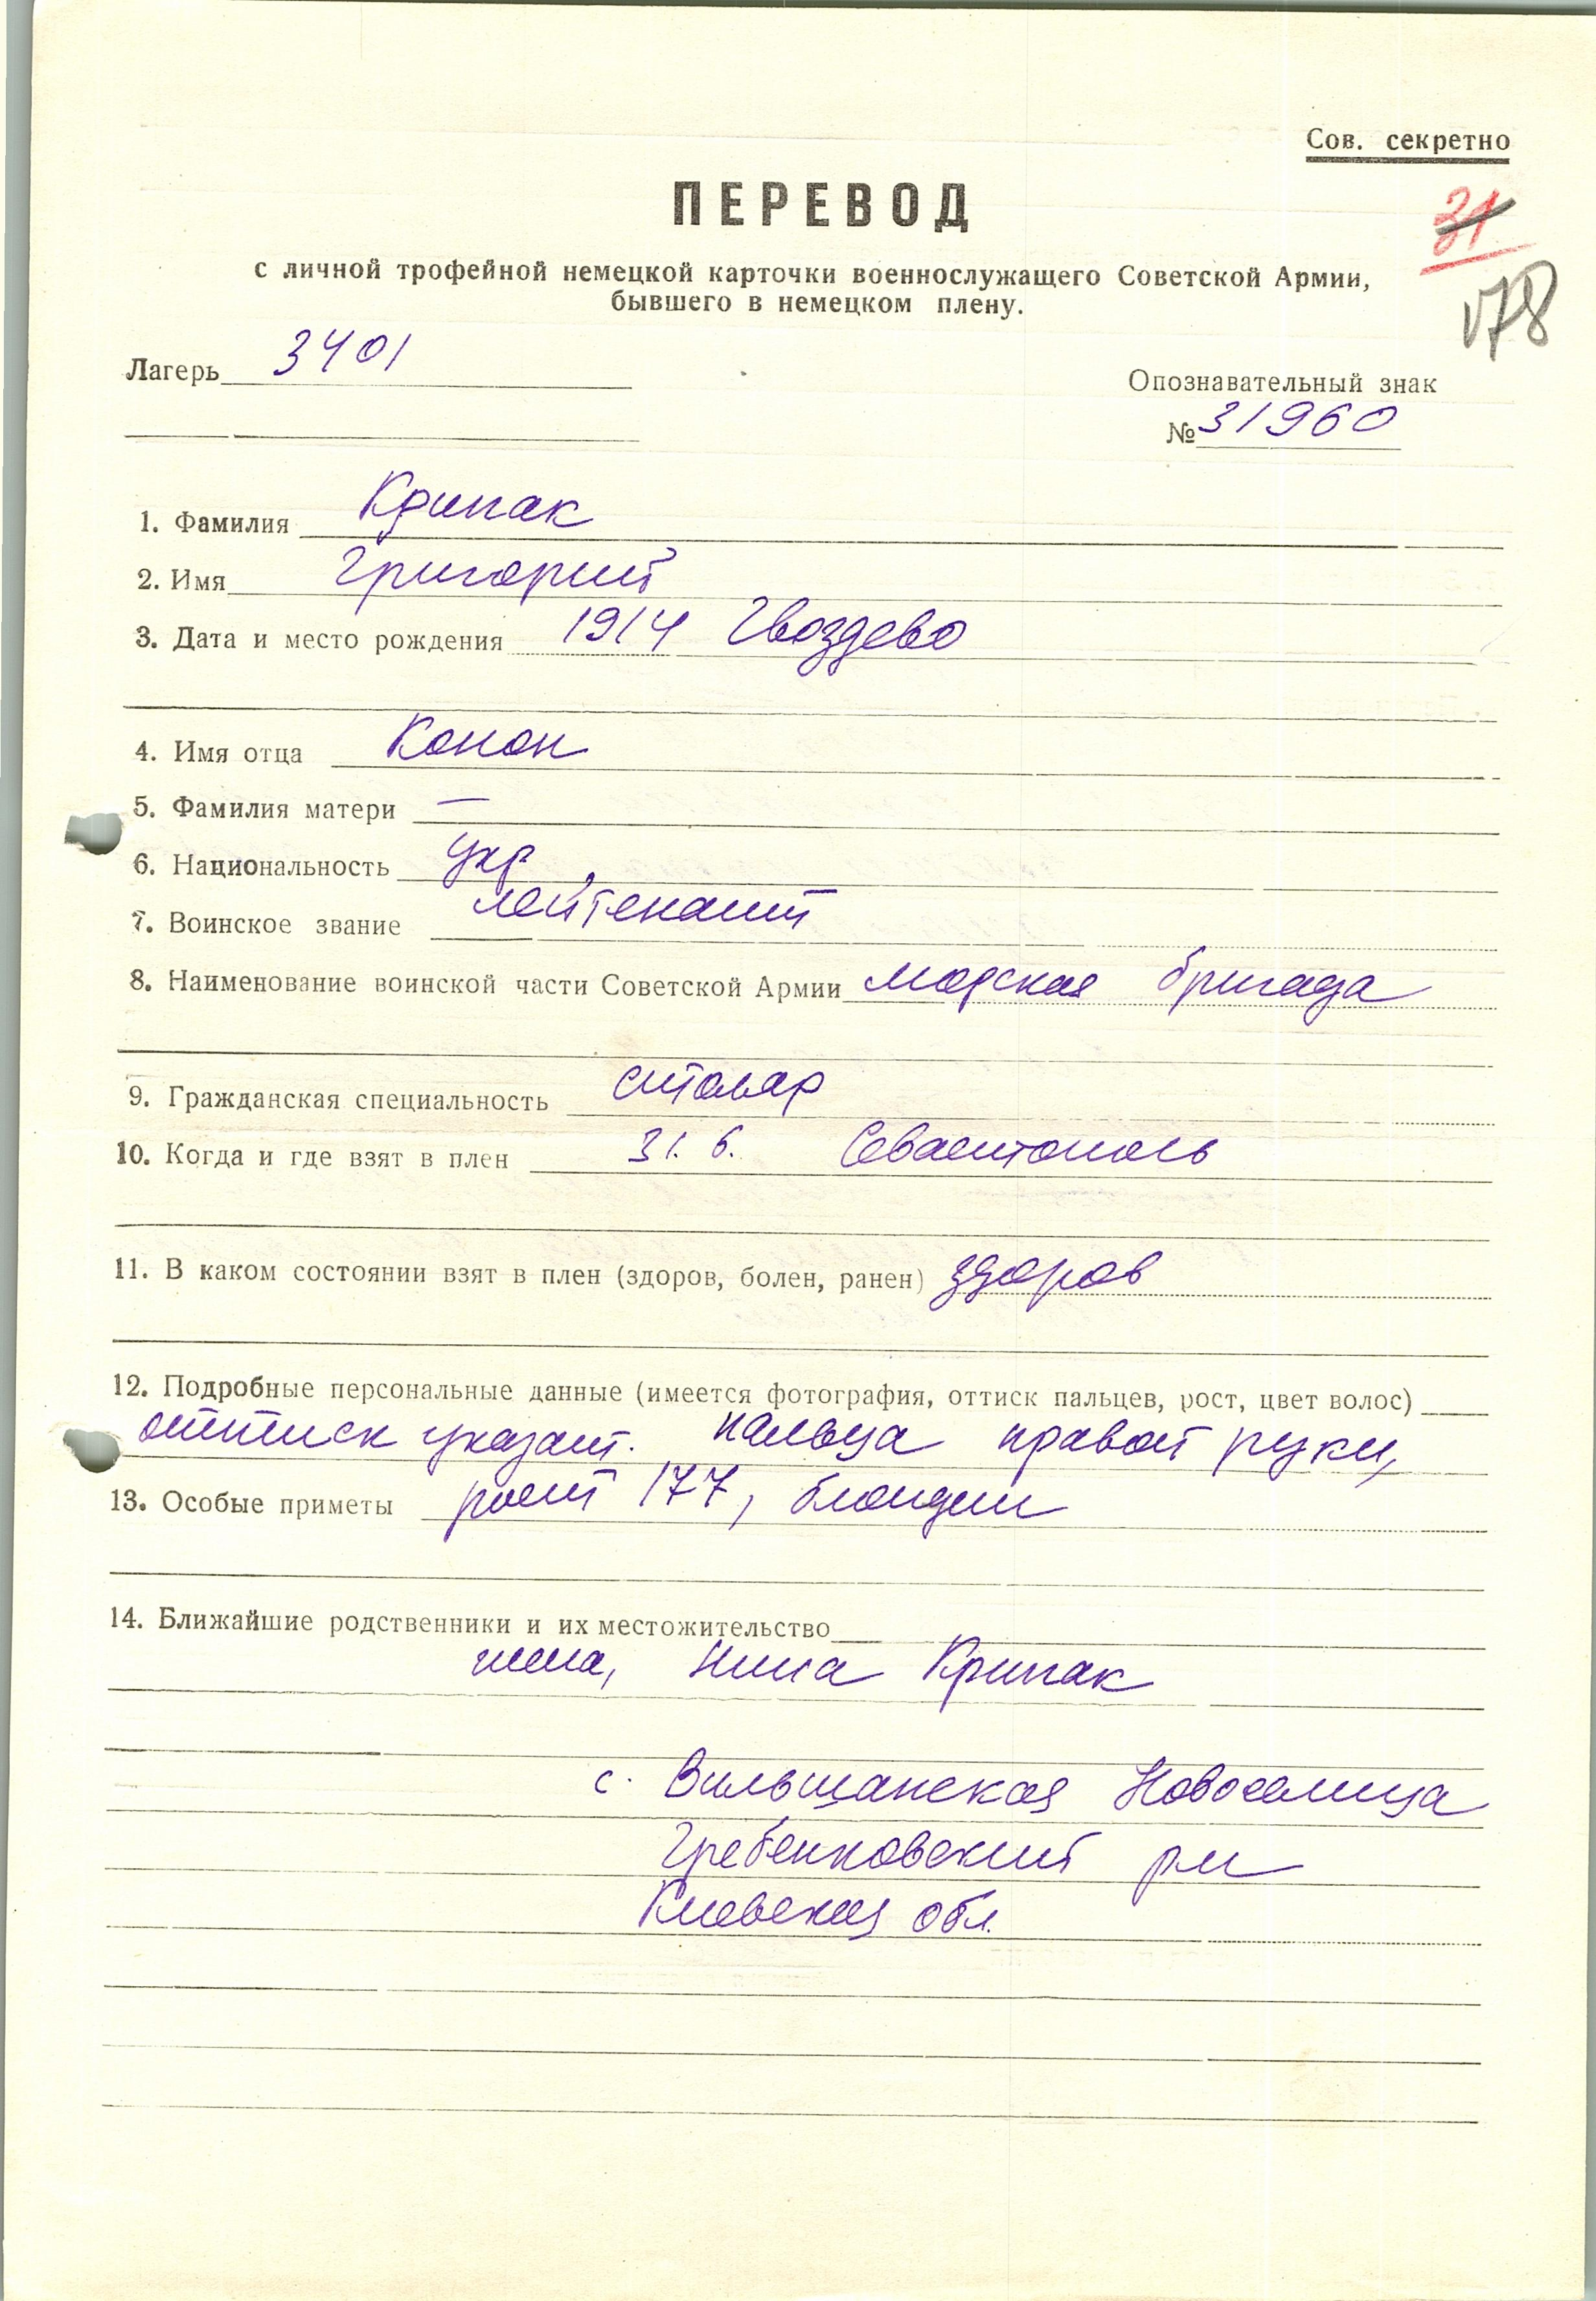 Сов. секретно
ПЕРЕВОД
31
с личной трофейной немецкой карточки военнослужащего Советской Армии,
бывшего в немецком плену.
178
Лагерь 3401
Опознавательный знак
№ 31960
1. Фамилия Крипак
2. Имя Григорий
3. Дата и место рождения 1914 Гвоздево
4. Имя отца Конон
5. Фамилия матери —
6. Национальность укр.
7. Воинское звание лейтенант
8. Наименование воинской части Советской Армии морская бригада
9. Гражданская специальность столяр
10. Когда и где взят в плен 31. 6. Севастополь
11. В каком состоянии взят в плен (здоров, болен, ранен) здоров
12. Подробные персональные данные (имеется фотография, оттиск пальцев, рост, цвет волос)
оттиск указат. пальца правой руки,
13. Особые приметы рост 177, блондин
14. Ближайшие родственники и их местожительство
жена, Нина Крипак
с. Вильшанская Новоселица
Гребенковский рн
Киевская обл.